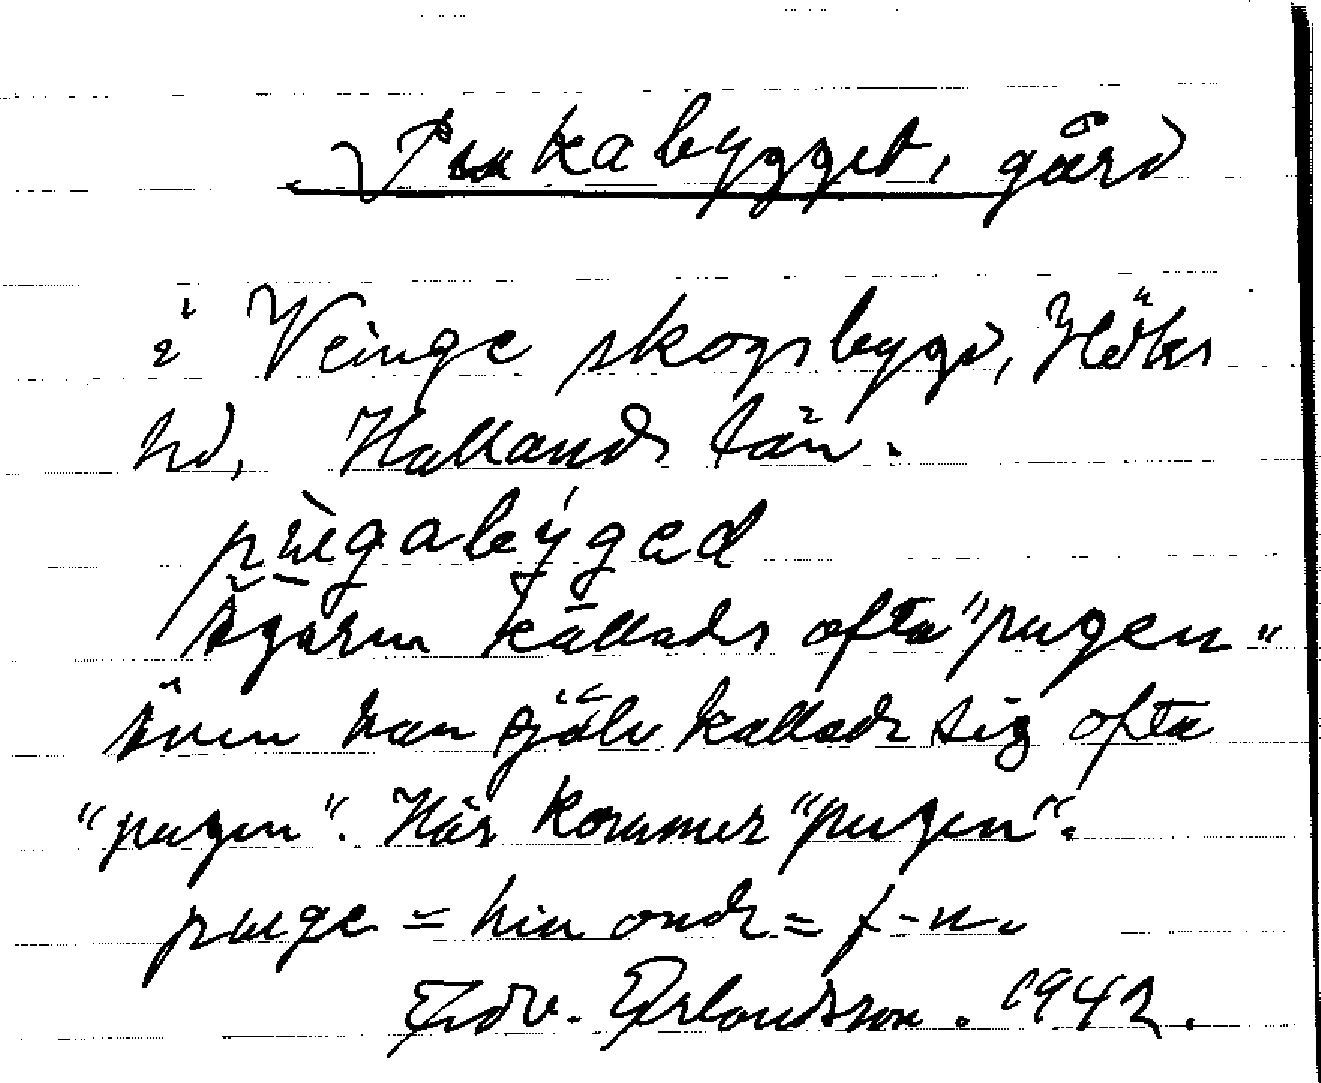 Pukabygget, gård
i Veinge skogsbygd, Höks
hd, Hallands län.
pùgabýged
Ägaren kallades ofta "pugen"
även han själv kallade sig ofta
"pugen". Här kommer "pugen".
puge = hin onde = f-n.
Edv. Erlandsson. 1942.